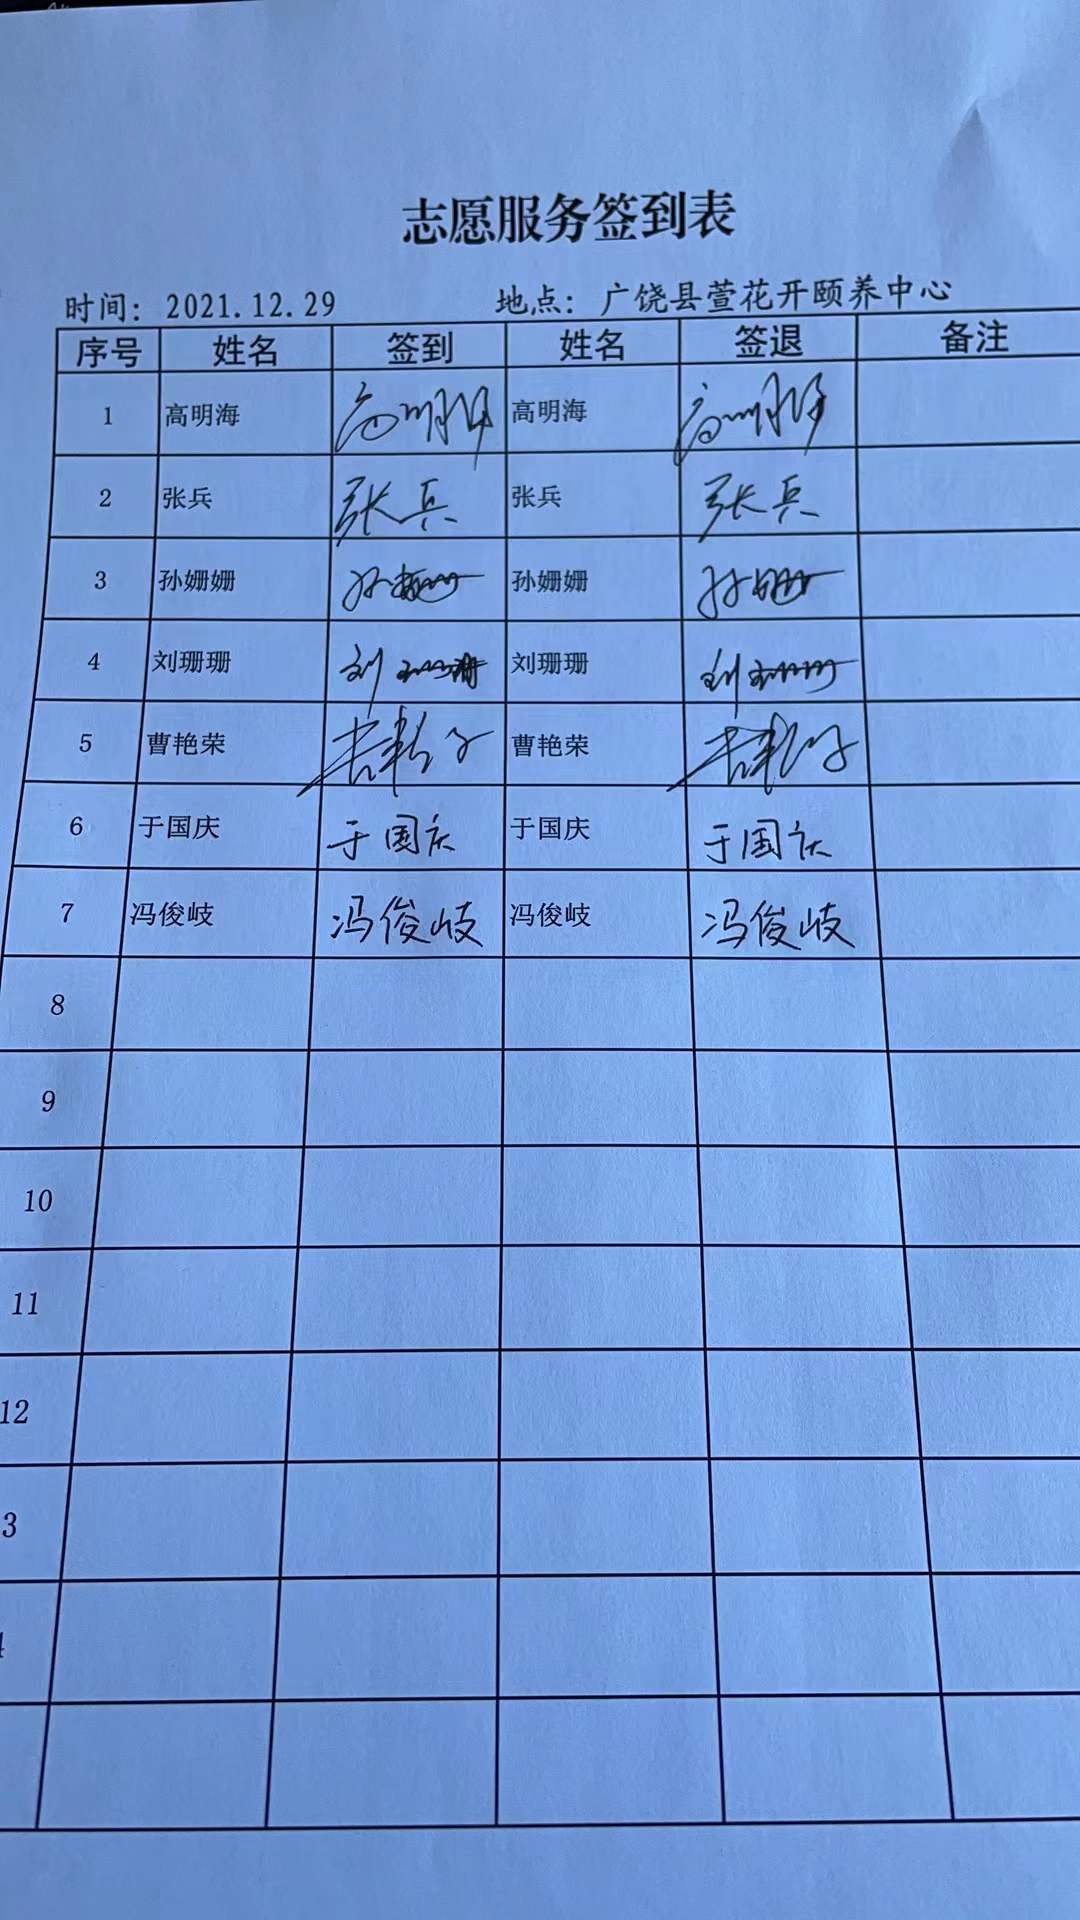 志愿服务签到表
时间: 2021.12.29 地点: 广饶县萱花开颐养中心
序号 姓名 签到 姓名 签退 备注
1 高明海 高明海 高明海 高明海
2 张兵 张兵 张兵 张兵
3 孙姗姗 孙姗姗 孙姗姗 孙姗姗
4 刘珊珊 刘珊珊 刘珊珊 刘珊珊
5 曹艳荣 曹艳荣
6 于国庆 于国庆 于国庆 于国庆
7 冯俊岐 冯俊岐 冯俊岐 冯俊岐
8
9
10
11
12
3
4